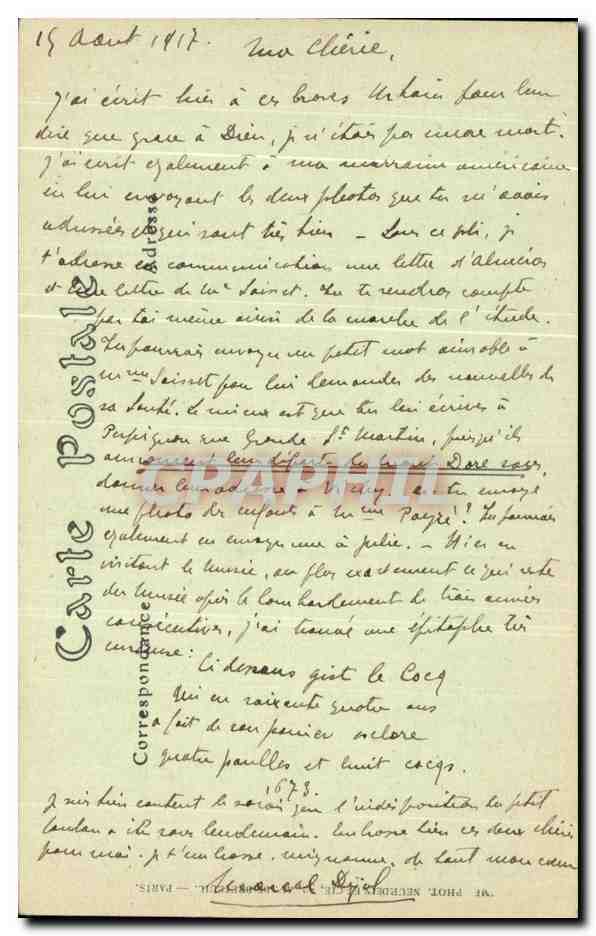 15 Aout 1917.
Ma Chérie,
J'ai écrit hier à ces braves Urbain pour leur
dire que grace à Dieu, je n'étais pas encore mort.
J'ai écrit egalement à ma marraine américaine
en lui envoyant les deux photos que tu m'avais
adressées et qui sont très bien — Sous ce pli, je
t'adresse en communication une lettre d'
et une lettre de Me Saisset. Tu te rendras compte
par toi même ainsi de la marche de l'étude.
Tu pourrais envoyer un petit mot aimable à
Mme Saisset pour lui demander des nouvelles de
sa santé. Le mieux est que tu lui écrives à
Perpignan rue Grande St Martin, puisqu'ils
annoncent leur départ sans
donner leur adresse à Vichy. as-tu envoyé
une photo des enfants à Mme Payré? Tu pourrais
egalement en envoyer une à Julie. — Hier en
visitant le musée, ou plus exactement ce qui reste
du musée après le bombardement de trois années
consécutives, j'ai trouvé une épitaphe très
curieuse:
Ci dessous gist le Cocq
Qui en soixante quatre ans
a fait de son panier eclore
quatre poulles et huit cocqs.
1673.
Je suis bien content de savoir que l'indisposition du petit
a été sans lendemain. Embrasse bien ces deux chéris
pour moi. Je t'embrasse mignonne, de tout mon coeur
Carte Postale
Correspondance
Adresse
CARAPHIL
IMP. PHOT. NEURDEIN ET CIE — PARIS.